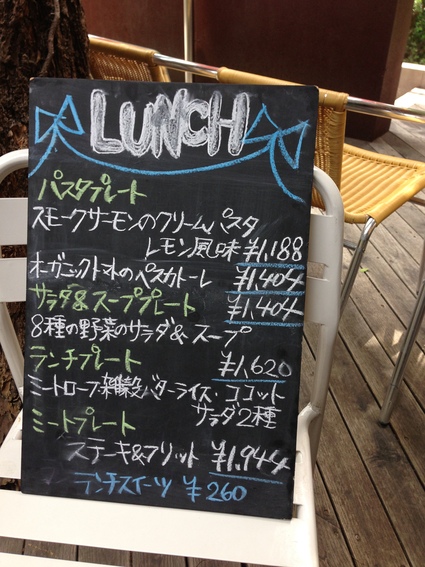 LUNCH
パスタプレート
スモークサーモンのクリームパスタ
レモン風味 ¥1,188
オーガニックトマトのペスカトーレ ¥1,404
サラダ&スーププレート ¥1,404
8種の野菜のサラダ&スープ
ランチプレート ¥1,620
ミートローフ・雑穀バターライス・ココット
サラダ2種
ミートプレート
ステーキ&フリット ¥1,944
ランチスイーツ ¥260